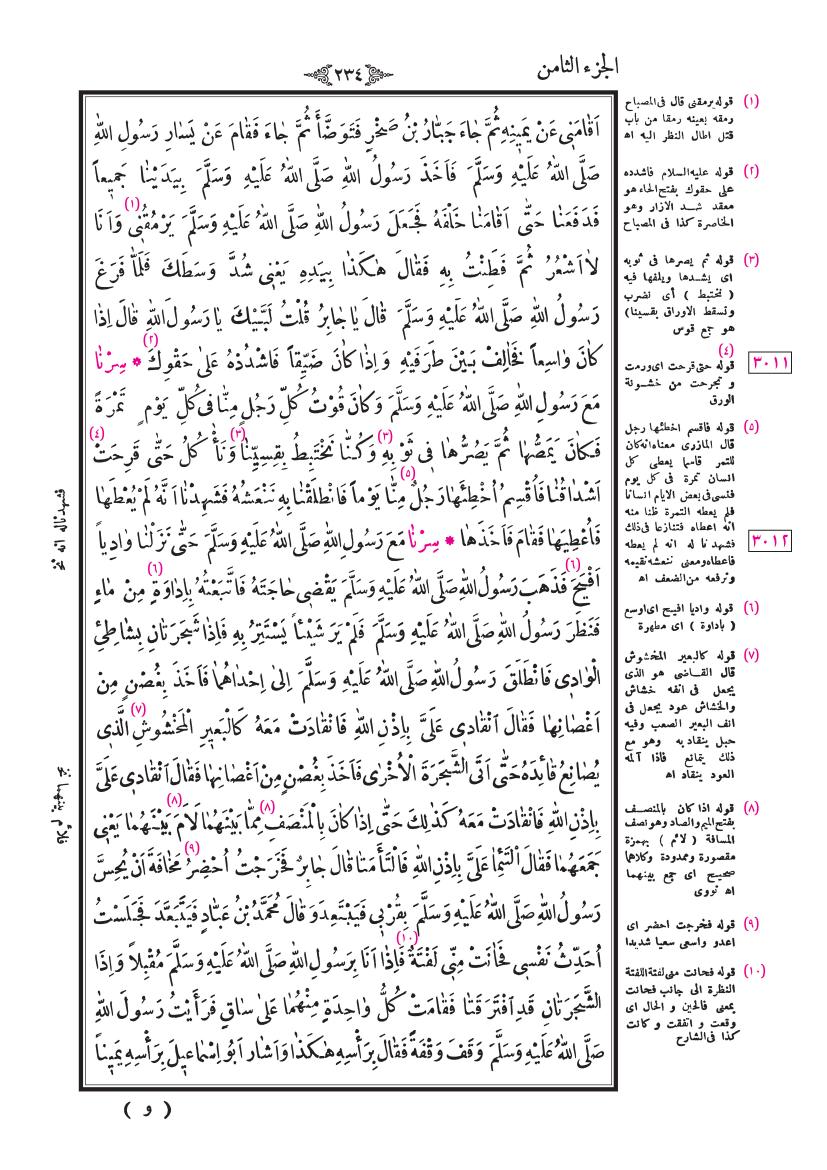 الجزء الثامن
٢٣٤
اَقَامَنِى عَنْ يَمِينِهِ ثُمَّ جَاءَ جَبَّارُ بْنُ صَخْرٍ فَتَوَضَّأَ ثُمَّ جَاءَ فَقَامَ عَنْ يَسَارِ رَسُولِ اللهِ
صَلَّى اللهُ عَلَيْهِ وَسَلَّمَ فَاَخَذَ رَسُولُ اللهِ صَلَّى اللهُ عَلَيْهِ وَسَلَّمَ بِيَدَيْنَا جَمِيعاً
فَدَفَعَنَا حَتّٰى اَقَامَنَا خَلْفَهُ فَجَعَلَ رَسُولُ اللهِ صَلَّى اللهُ عَلَيْهِ وَسَلَّمَ يَرْمُقُنِى (١) وَاَنَا
لاٰ اَشْعُرُ ثُمَّ فَطِنْتُ بِهِ فَقَالَ هٰكَذَا بِيَدِهِ يَعْنِى شُدَّ وَسَطَكَ فَلَمَّا فَرَغَ
رَسُولُ اللهِ صَلَّى اللهُ عَلَيْهِ وَسَلَّمَ قَالَ يَا جَابِرُ قُلْتُ لَبَّيْكَ يَا رَسُولَ اللهِ قَالَ اِذَا
كَانَ وَاسِعاً فَخَالِفْ بَيْنَ طَرَفَيْهِ (٢) وَاِذَا كَانَ ضَيِّقاً فَاشْدُدْهُ عَلىٰ حَقْوِكَ * سِرْنَا
مَعَ رَسُولِ اللهِ صَلَّى اللهُ عَلَيْهِ وَسَلَّمَ وَكَانَ قُوتُ كُلِّ رَجُلٍ مِنَّا فِى كُلِّ يَوْمٍ تَمْرَةً
فَكَانَ يَمَصُّهَا ثُمَّ يَصُرُّهَا فِى ثَوْبِهِ (٣) وَكُنَّا نَخْتَبِطُ بِقِسِيِّنَا (٣) وَنَأْكُلُ حَتّٰى قَرِحَتْ (٤)
اَشْدَاقُنَا فَاُقْسِمُ اُخْطِئَهَا (٥) رَجُلٌ مِنَّا يَوْماً فَانْطَلَقْنَا بِهِ نَنْعَشُهُ فَشَهِدْنَا اَنَّهُ لَمْ يُعْطَهَا
فَاُعْطِيَهَا فَقَامَ فَاَخَذَهَا * سِرْنَا مَعَ رَسُولِ اللهِ صَلَّى اللهُ عَلَيْهِ وَسَلَّمَ حَتّٰى نَزَلْنَا وَادِياً
اَفْيَحَ (٦) فَذَهَبَ رَسُولُ اللهِ صَلَّى اللهُ عَلَيْهِ وَسَلَّمَ يَقْضِى حَاجَتَهُ فَاتَّبَعْتُهُ بِاِدَاوَةٍ (٦) مِنْ مَاءٍ
فَنَظَرَ رَسُولُ اللهِ صَلَّى اللهُ عَلَيْهِ وَسَلَّمَ فَلَمْ يَرَ شَيْئاً يَسْتَتِرُ بِهِ فَاِذَا شَجَرَتَانِ بِشَاطِئِ
الْوَادِى فَانْطَلَقَ رَسُولُ اللهِ صَلَّى اللهُ عَلَيْهِ وَسَلَّمَ اِلىٰ اِحْدَاهُمَا فَاَخَذَ بِغُصْنٍ مِنْ
اَغْصَانِهَا فَقَالَ انْقَادِى عَلَىَّ بِاِذْنِ اللهِ فَانْقَادَتْ مَعَهُ كَالْبَعِيرِ الْمَخْشُوشِ (٧) الَّذِى
يُصَانِعُ قَائِدَهُ حَتّٰى اَتَى الشَّجَرَةَ الْاُخْرٰى فَاَخَذَ بِغُصْنٍ مِنْ اَغْصَانِهَا فَقَالَ انْقَادِى عَلَىَّ
بِاِذْنِ اللهِ فَانْقَادَتْ مَعَهُ كَذٰلِكَ حَتّٰى اِذَا كَانَ بِالْمَنْصَفِ (٨) مِمَّا بَيْنَهُمَا لَاَمَ (٨) بَيْنَهُمَا يَعْنِى
جَمَعَهُمَا فَقَالَ الْتَئِمَا عَلَىَّ بِاِذْنِ اللهِ فَالْتَأَمَتَا قَالَ جَابِرٌ فَخَرَجْتُ اُحْضِرُ (٩) مَخَافَةَ اَنْ يُحِسَّ
رَسُولُ اللهِ صَلَّى اللهُ عَلَيْهِ وَسَلَّمَ بِقُرْبِى فَيَبْتَعِدَ وَقَالَ مُحَمَّدُ بْنُ عَبَّادٍ فَيَتَبَعَّدَ فَجَلَسْتُ
اُحَدِّثُ نَفْسِى فَحَانَتْ مِنِّى لَفْتَةٌ (١٠) فَاِذَا اَنَا بِرَسُولِ اللهِ صَلَّى اللهُ عَلَيْهِ وَسَلَّمَ مُقْبِلاً وَاِذَا
الشَّجَرَتَانِ قَدِ افْتَرَقَتَا فَقَامَتْ كُلُّ وَاحِدَةٍ مِنْهُمَا عَلىٰ سَاقٍ فَرَأَيْتُ رَسُولَ اللهِ
صَلَّى اللهُ عَلَيْهِ وَسَلَّمَ وَقَفَ وَقْفَةً فَقَالَ بِرَأْسِهِ هٰكَذَا وَاَشَارَ اَبُو اِسْمَاعِيلَ بِرَأْسِهِ يَمِيناً
( و )
(١) قوله يرمقنى قال فى المصباح
رمقه بعينه رمقا من باب
قتل اطال النظر اليه اه
(٢) قوله عليه السلام فاشدده
على حقوك بفتح الحاء هو
معقد شد الازار وهو
الخاصرة كذا فى المصباح
(٣) قوله ثم يصرها فى ثوبه
اى يشدها ويلفها فيه
( نختبط ) أى نضرب
وتسقط الاوراق بقسينا)
هو جمع قوس
(٤)
قوله حتى قرحت اى ورمت
و تجرحت من خشونة
الورق
٣٠١١
(٥) قوله فاقسم اخطئها رجل
قال المازرى معناه انه كان
للتمر قاسم يعطى كل
انسان تمرة فى كل يوم
فنسى فى بعض الايام انسانا
فلم يعطه التمرة ظنا منه
انه اعطاه فتنازعا فى ذلك
فشهدنا له انه لم يعطه
فاعطاه ومعنى ننعشه نقيمه
ونرفعه من الضعف اه
٣٠١٢
(٦) قوله واديا افيح اى اوسع
( باداوة ) اى مطهرة
(٧) قوله كالبعير المخشوش
قال القاضى هو الذى
يجعل فى انفه خشاش
والخشاش عود يجعل فى
انف البعير الصعب وفيه
حبل ينقاد به وهو مع
ذلك يتمانع فاذا آلمه
العود ينقاد اه
(٨) قوله اذا كان بالمنصف
بفتح الميم والصاد وهو نصف
المسافة ( لائم ) بهمزة
مقصورة وممدودة وكلاهما
صحيح اى جمع بينهما
اه نووى
(٩) قوله فخرجت احضر اى
اعدو واسعى سعيا شديدا
(١٠) قوله فحانت منى لفتة اللفتة
النظرة الى جانب فحانت
بمعنى فالحين و الحال اى
وقعت و اتفقت و كانت
كذا فى الشارح
فشهدنا له انه نخ
فلاءم بينهما نخ